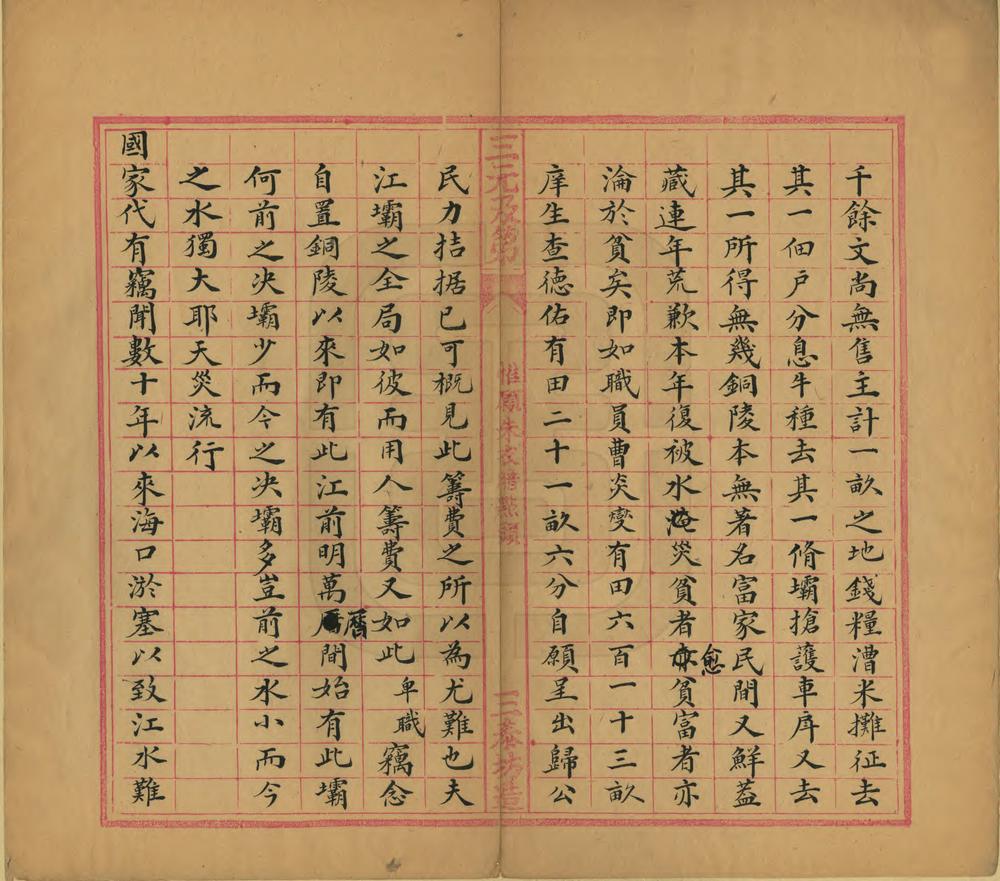 千餘文尚無售主計一畝之地錢糧漕米攤征去
其一佃戶分息牛種去其一脩壩搶護車戽又去
其一所得無幾銅陵本無著名富家民間又鮮蓋
藏連年荒歉本年復被水淹災貧者愈貧富者亦
淪於貧矣即如職員曹炎燮有田六百一十三畝
庠生查德佑有田二十一畝六分自願呈出歸公
三元及第
惟鳳朱衣
三泰坊造
民力拮据已可概見此籌費之所以為尤難也夫
江壩之全局如彼而用人籌費又如此卑職竊念
自置銅陵以來即有此江前明萬曆間始有此壩
何前之決壩少而今之決壩多豈前之水小而今
之水獨大耶天災流行
國家代有竊聞數十年以來海口淤塞以致江水難